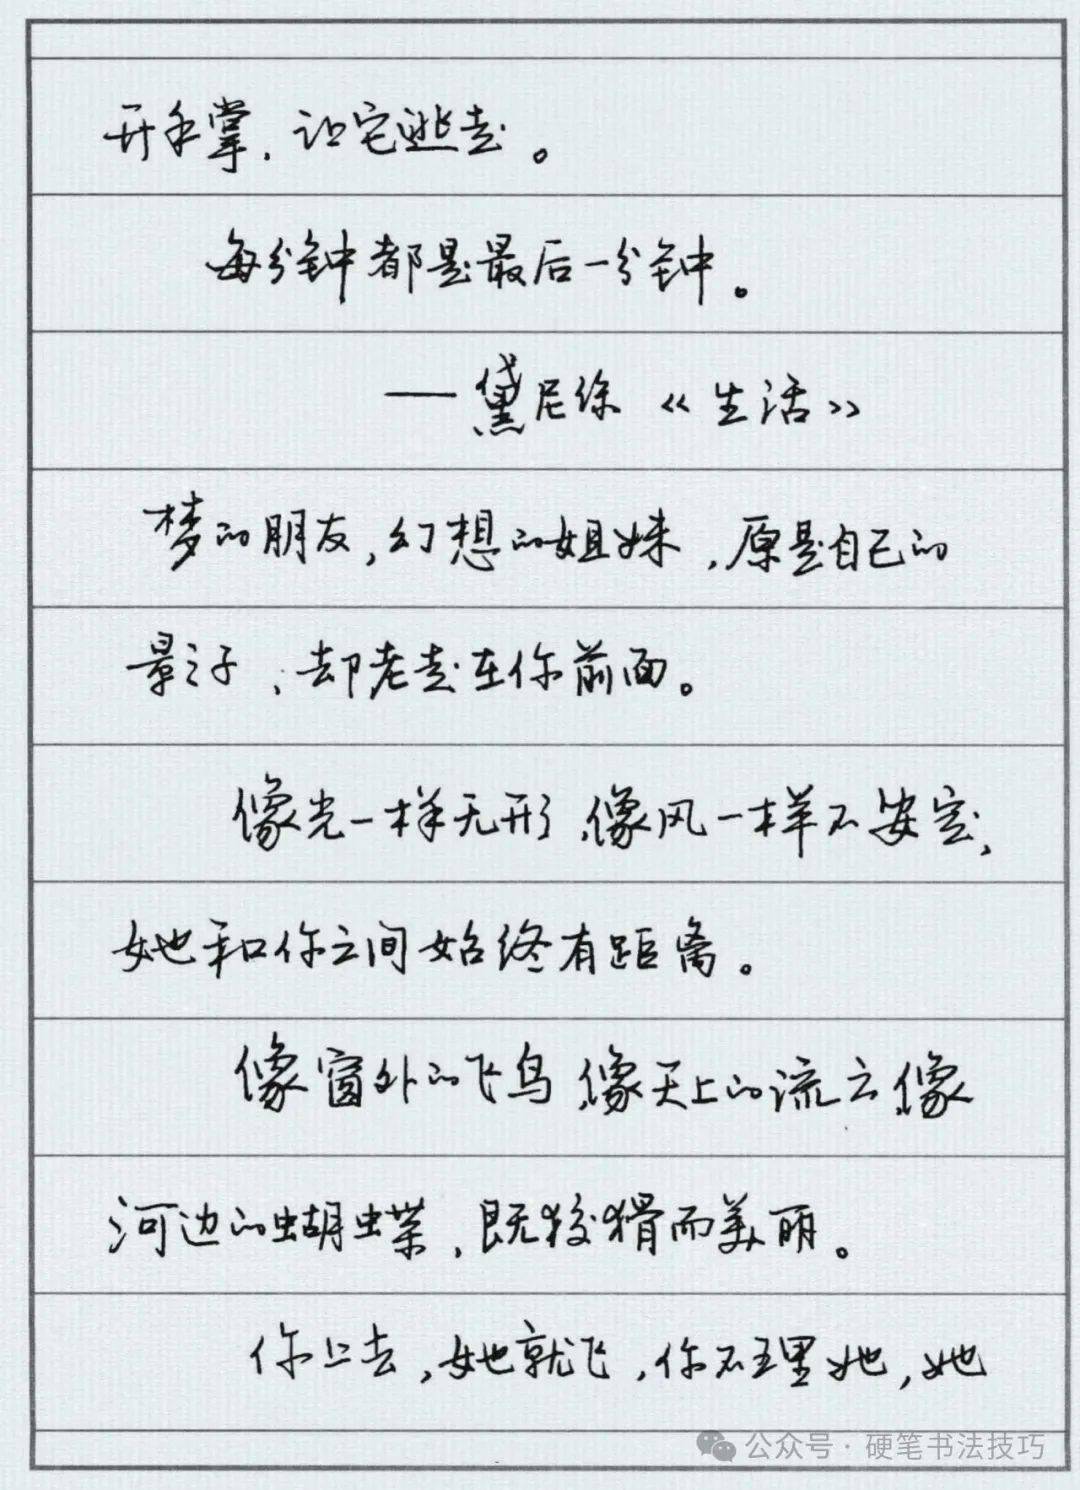 开手掌，让它逃走。
每分钟都是最后一分钟。
——黛尼徐《生活》
梦的朋友，幻想的姐妹，原是自己的
影子，却老走在你前面。
像光一样无形，像风一样不安定，
她和你之间始终有距离。
像窗外的飞鸟，像天上的流云，像
河边的蝴蝶，既狡猾而美丽。
你上去，她就飞，你不理她，她
公众号·硬笔书法技巧